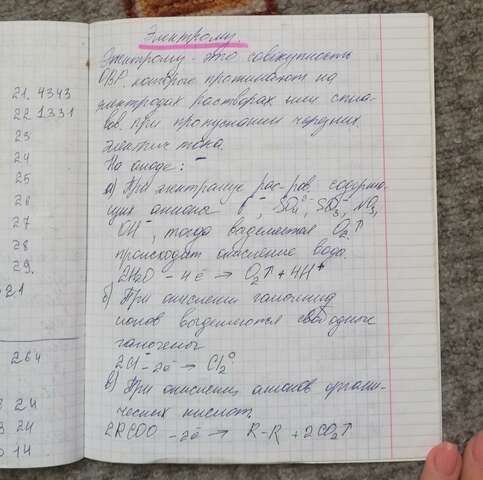 21. 4343
22 1331
23
24
25
26
27
28
29.
21
264
24
24
14
Электролиз.
Электролиз - это совокупность
ОВР, которые протекают на
электродах растворах или спла-
вов при пропускании через них
электрич тока.
На аноде: -
а) При электролизе рас-ров. содержа-
щих анионы F⁻, SO₄⁻, SO₃⁻, NO₃,
OH⁻, тогда выделяется O₂↑
происходит окисление воды.
2H₂O - 4ē → O₂↑ + 4H⁺
б) При окислении галогенид
ионов выделяются свободные
галогены
2Cl⁻ - 2ē → Cl₂⁰
в) При окислении, анионов органи-
ческих кислот.
2RCOO - 2ē → R-R + 2CO₂↑